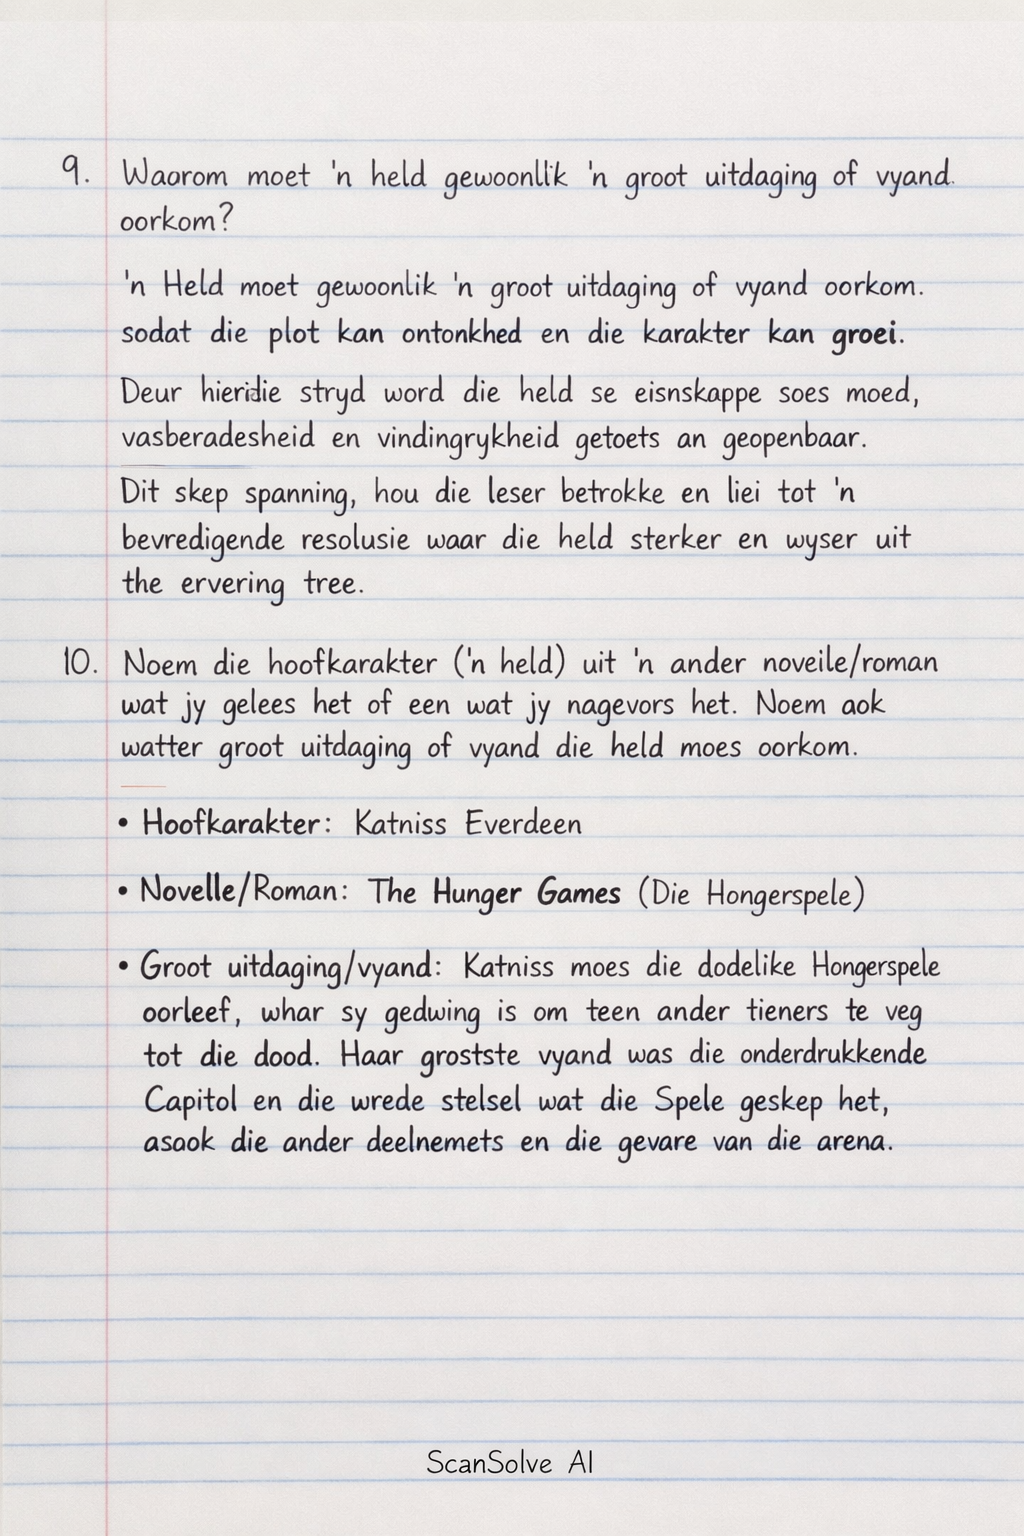 9. Waarom moet 'n held gewoonlik 'n groot uitdaging of vyand.
oorkom?
'n Held moet gewoonlik 'n groot uitdaging of vyand oorkom.
sodat die plot kan ontonkhed en die karakter kan groei.
Deur hieridie stryd word die held se eisnskappe soes moed,
vasberadesheid en vindingrykheid getoets an geopenbaar.
Dit skep spanning, hou die leser betrokke en liei tot 'n
bevredigende resolusie waar die held sterker en wyser uit
the ervering tree.
10. Noem die hoofkarakter ('n held) uit 'n ander noveile/roman
wat jy gelees het of een wat jy nagevors het. Noem aok
watter groot uitdaging of vyand die held moes oorkom.
• Hoofkarakter: Katniss Everdeen
• Novelle/Roman: The Hunger Games (Die Hongerspele)
• Groot uitdaging/vyand: Katniss moes die dodelike Hongerspele
oorleef, whar sy gedwing is om teen ander tieners te veg
tot die dood. Haar grostste vyand was die onderdrukkende
Capitol en die wrede stelsel wat die Spele geskep het,
asaok die ander deelnemets en die gevare van die arena.
ScanSolve AI